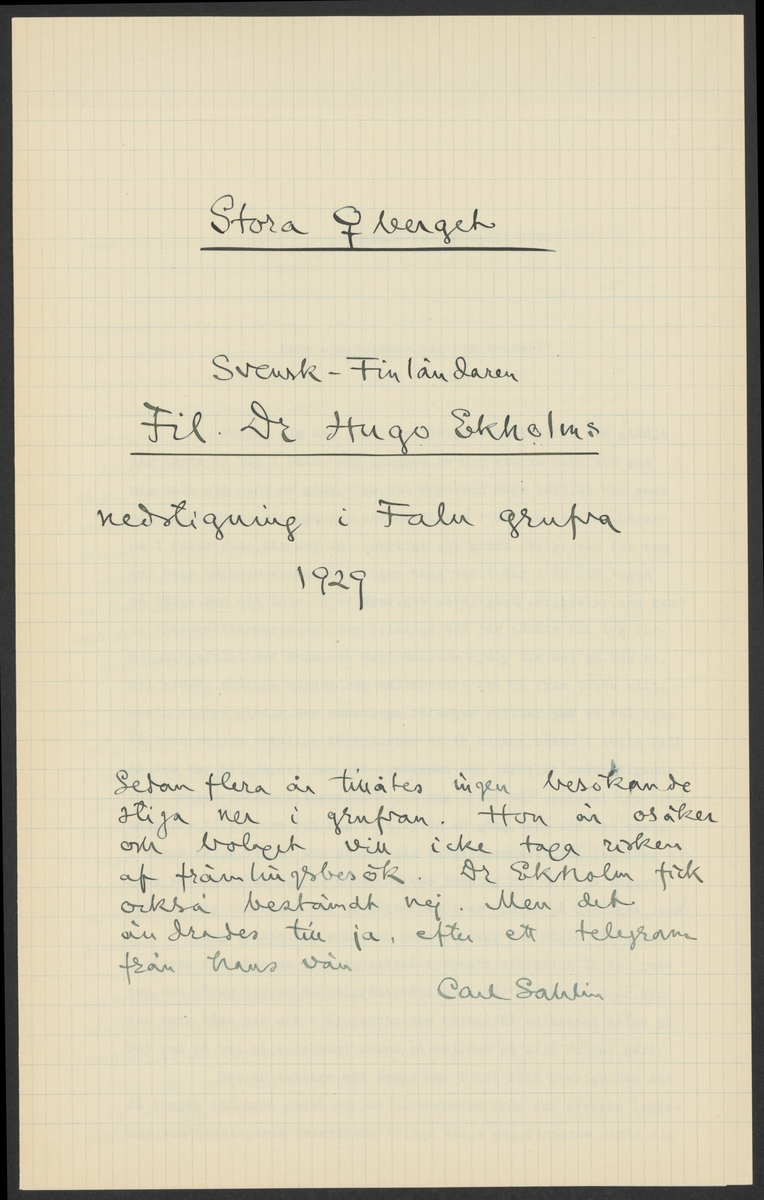 Stora ♀berget
Svensk-Finländaren
Fil. Dr Hugo Ekholms
nedstigning i Falu grufva
1929
Sedan flera år tillåtes ingen besökande
stiga ner i grufvan. Hon är osäker
och bolaget vill icke taga risken
af främlingsbesök. Dr Ekholm fick
också bestämdt nej. Men det
ändrades till ja, efter ett telegram
från hans vän
Carl Sahlin